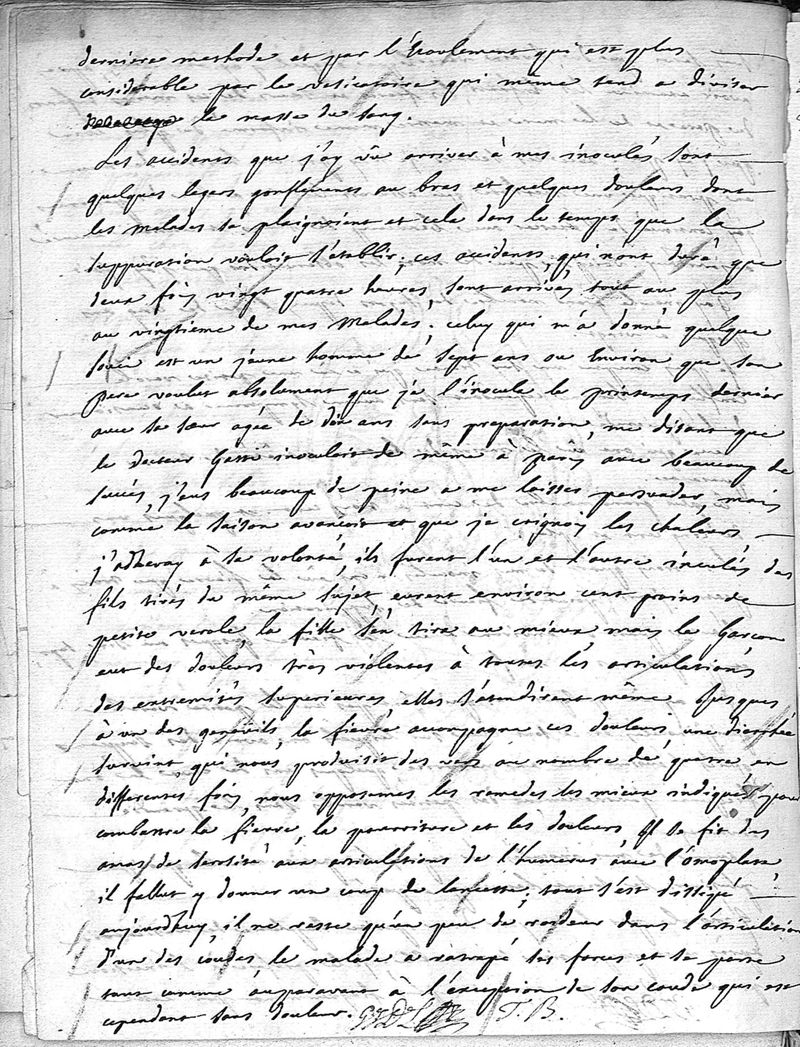 derniere methode et par l'écoulement qui est plus
considerable par le vesicatoire qui même tend a diviser
le masse du sang.
Les accidents que j'ay vû arriver à mes inoculés sont
quelques legers gonflements au bras et quelques douleurs dont
les malades se plaignoient et cela dans le temps que la
suppuration vouloit s'établir; ces accidents, qui n'ont duré que
deux fois vingt quatre heures, sont arrivés tout au plus
au vingtieme de mes malades. celuy qui m'a donné quelque
souci est un jeune homme de sept ans ou environ que son
pere voulut absolument que je l'inocula le printemps dernier
avec sa sœur agée de dix ans sans preparation, me disant que
le docteur Gatti inoculoit de même à paris avec beaucoup de
succés, j'eus beaucoup de peine a me laisser persuader, mais
comme la saison avançoit et que je crignois les chaleurs
j'adheray à sa volonté, ils furent l'un et l'autre inculés des
fils tirés du même sujet, eurent environ cent grains de
petite verole, la fille s'en tira au mieux mais le Garçon
eut des douleurs très violentes à toutes les articulations
des extremités superieures, elles s'étendirent même jusques
à un des genouils, la fievre accompagna ces douleurs, une diarrhée
survint, qui nous produisit des vers au nombre de quatre en
differentes fois, nous opposames les remedes les mieux indiqués pour
combattre la fievre, la pourriture et les douleurs, Il se fit des
amas de serosité aux articulations de l'humerus avec l'omoplate
il fallut y donner un coup de lancette; tout s'est dissipé
aujourdhuy, il ne reste qu'un peu de roideur dans l'articulation
d'un des coudes, le malade a ratrapé ses forces et se porte
tout comme auparavant à l'exception de son coude qui est
cependant sans douleur. T. B.